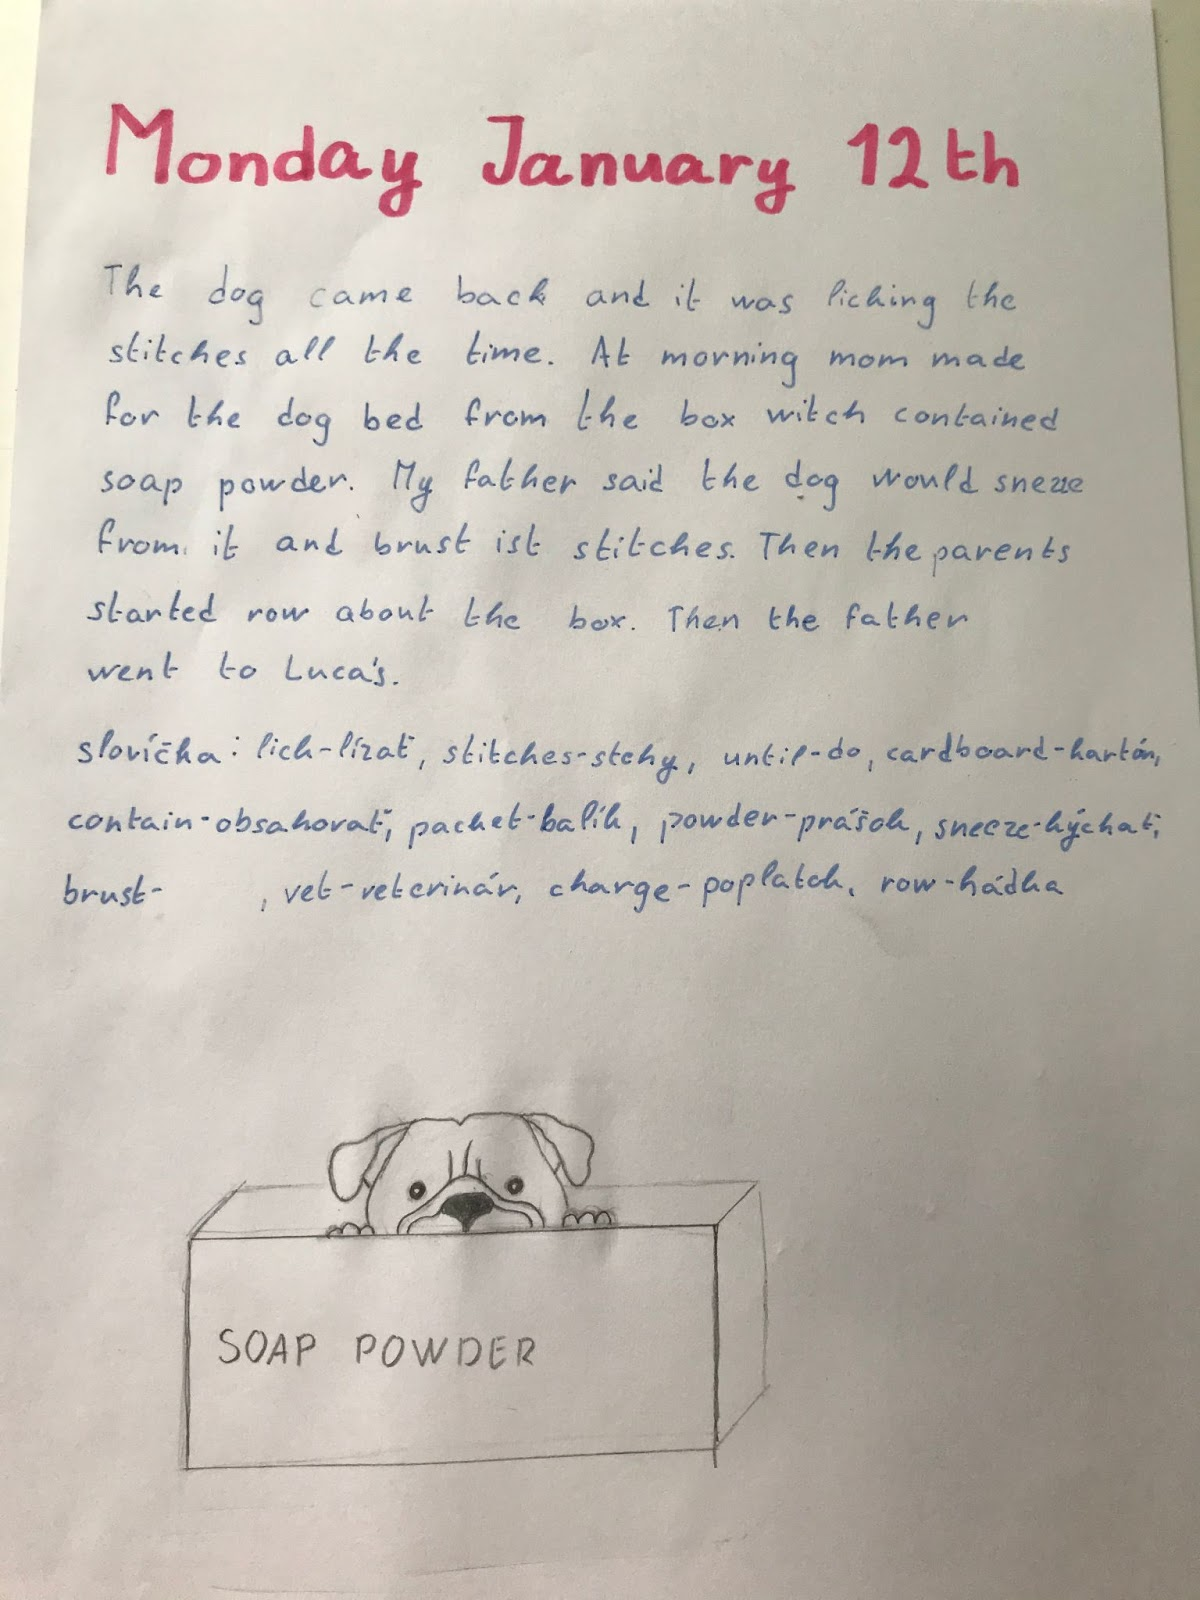 Monday January 12th
The dog came back and it was licking the
stitches all the time. At morning mom made
for the dog bed from the box witch contained
soap powder. My father said the dog would sneeze
from it and brust ist stitches. Then the parents
started row about the box. Then the father
went to Luca's.
slovíčka: lick-lízať, stitches-stehy, until-do, cardboard-kartón,
contain-obsahovať, packet-balík, powder-prášok, sneeze-kýchať,
brust- , vet-veterinár, charge-poplatok, row-hádka
SOAP POWDER